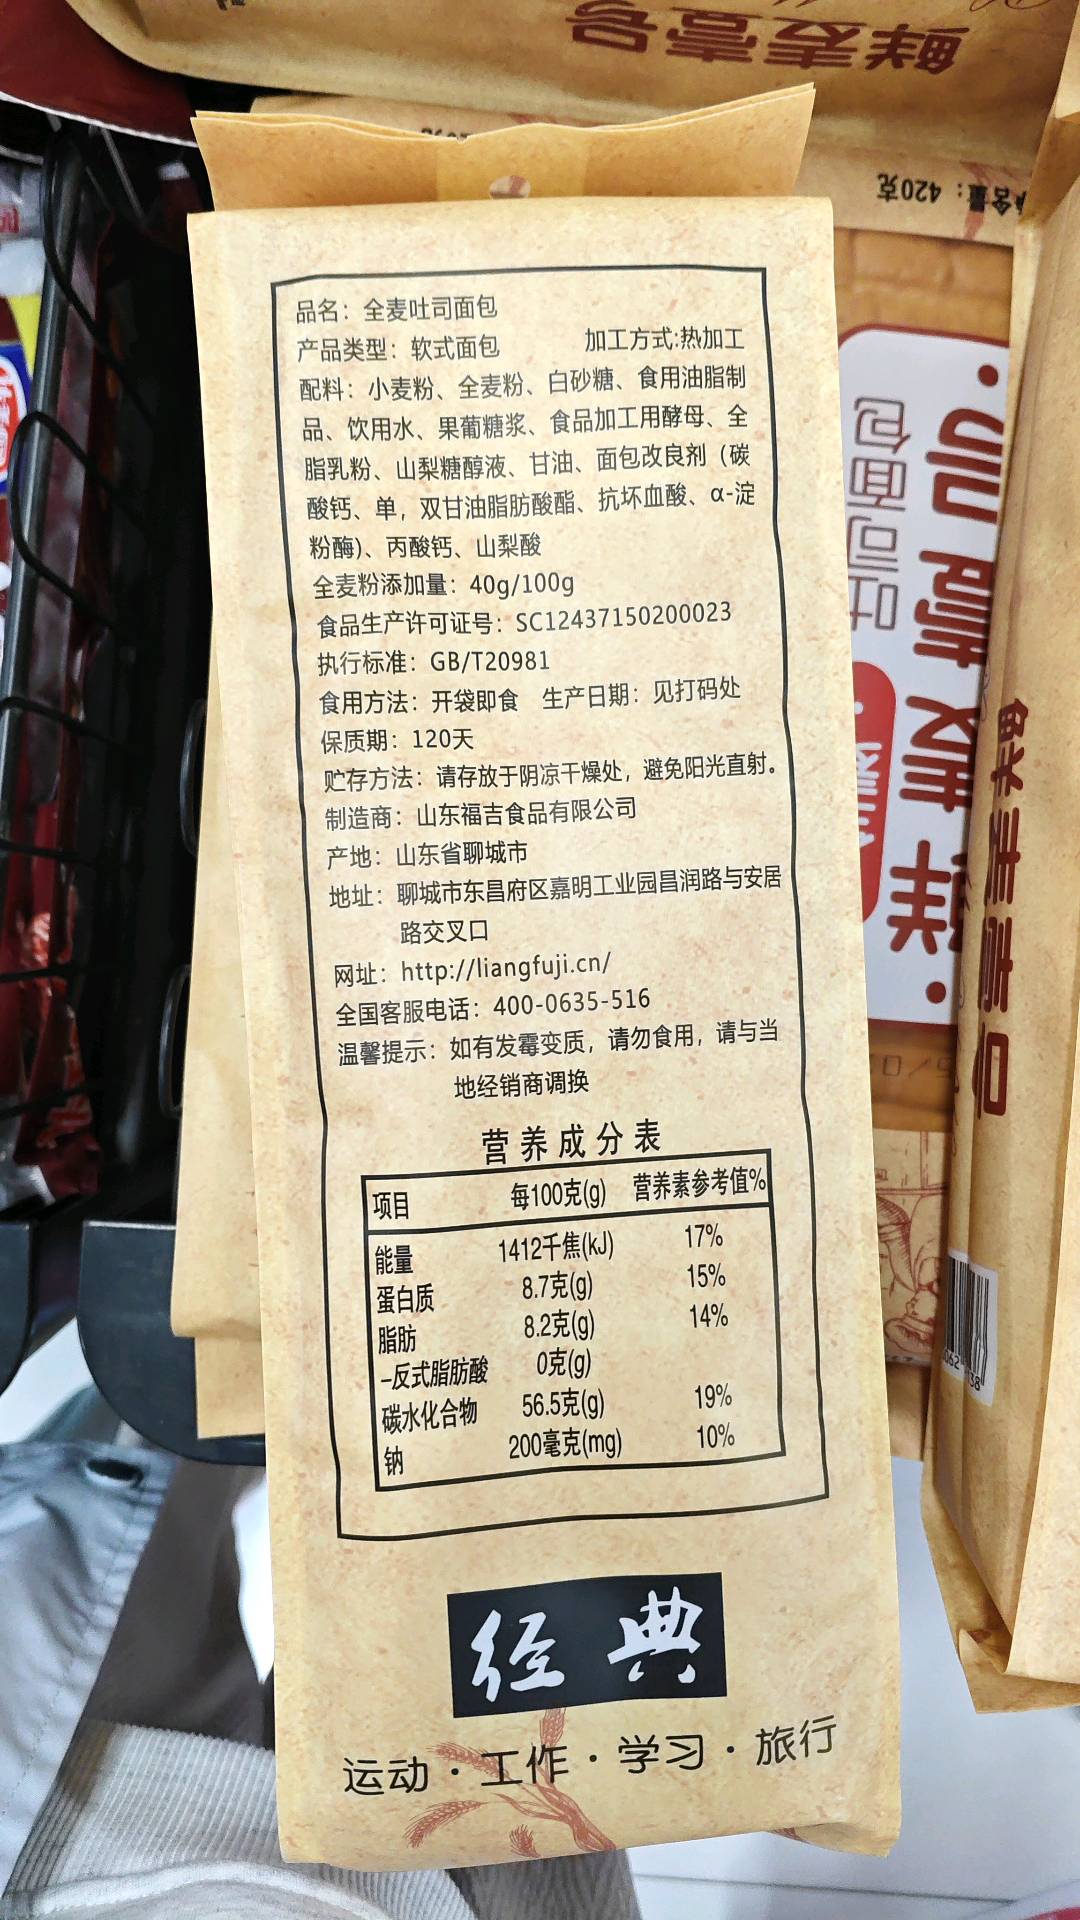 鲜麦壹号
含量：420克
品名：全麦吐司面包
产品类型：软式面包 加工方式:热加工
配料：小麦粉、全麦粉、白砂糖、食用油脂制
品、饮用水、果葡糖浆、食品加工用酵母、全
脂乳粉、山梨糖醇液、甘油、面包改良剂（碳
酸钙、单，双甘油脂肪酸酯、抗坏血酸、α-淀
粉酶）、丙酸钙、山梨酸
全麦粉添加量：40g/100g
食品生产许可证号：SC12437150200023
执行标准：GB/T20981
食用方法：开袋即食 生产日期：见打码处
保质期：120天
贮存方法：请存放于阴凉干燥处，避免阳光直射。
制造商：山东福吉食品有限公司
产地：山东省聊城市
地址：聊城市东昌府区嘉明工业园昌润路与安居
路交叉口
网址：http://liangfuji.cn/
全国客服电话：400-0635-516
温馨提示：如有发霉变质，请勿食用，请与当
地经销商调换
营养成分表
项目 每100克(g) 营养素参考值%
能量 1412千焦(kJ) 17%
蛋白质 8.7克(g) 15%
脂肪 8.2克(g) 14%
-反式脂肪酸 0克(g)
碳水化合物 56.5克(g) 19%
钠 200毫克(mg) 10%
经典
运动·工作·学习·旅行
吐司面包
鲜麦壹号
鲜麦壹号